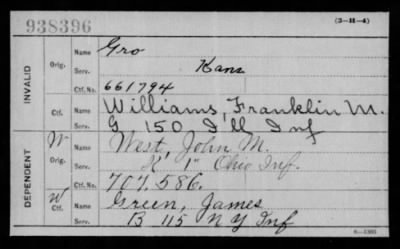 938396
(3-H-4)
INVALID
Orig.
Name Gro
Serv. Kans
Ctf. No. 661794
Ctf.
Name Williams, Franklin M.
Serv. G 150 Ill Inf
DEPENDENT
W Orig.
Name West, John M.
Serv. K 1" Ohio Inf.
Ctf. No. 701.586.
W Ctf.
Name Green, James
Serv. B 115 N Y Inf